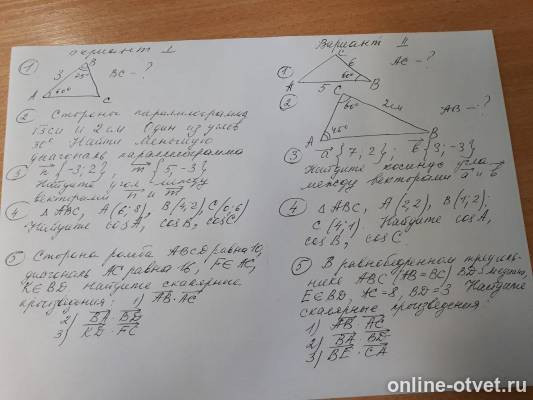 Вариант I
① 3 B 25° BC - ?
A 60° C
② Стороны параллелограмма
√3 см и 2 см Один из углов
30° Найти меньшую
диагональ параллелограмма
③ n {-3; 2}, m {5; -3}
Найдите угол между
векторами n и m
④ △ ABC, A (6; 8), B (4; 2), C (0; 6)
Найдите cos A, cos B, cos C
⑤ Сторона ромба ABCD равна 10,
диагональ AC равна 16, F∈AC,
K∈BD. Найдите скалярные
произведения: 1) AB · AC
2) BA · BD
3) KD · FC
Вариант II
① C 6 AC - ?
A 5 60° B
② C 60° 2 см AB - ?
A 45° B
③ a {7; 2}; b {3; -3}
Найдите косинус угла
между векторами a и b
④ △ ABC, A (2; 2), B (1; 2),
C (4; 1) Найдите cos A,
cos B, cos C.
⑤ В равнобедренном треуголь-
нике ABC (AB = BC) BD - медиана,
E∈BD, AC = 8, BD = 3 Найдите
скалярные произведения:
1) AB · AC
2) BA · BD
3) BE · CA
online-otvet.ru